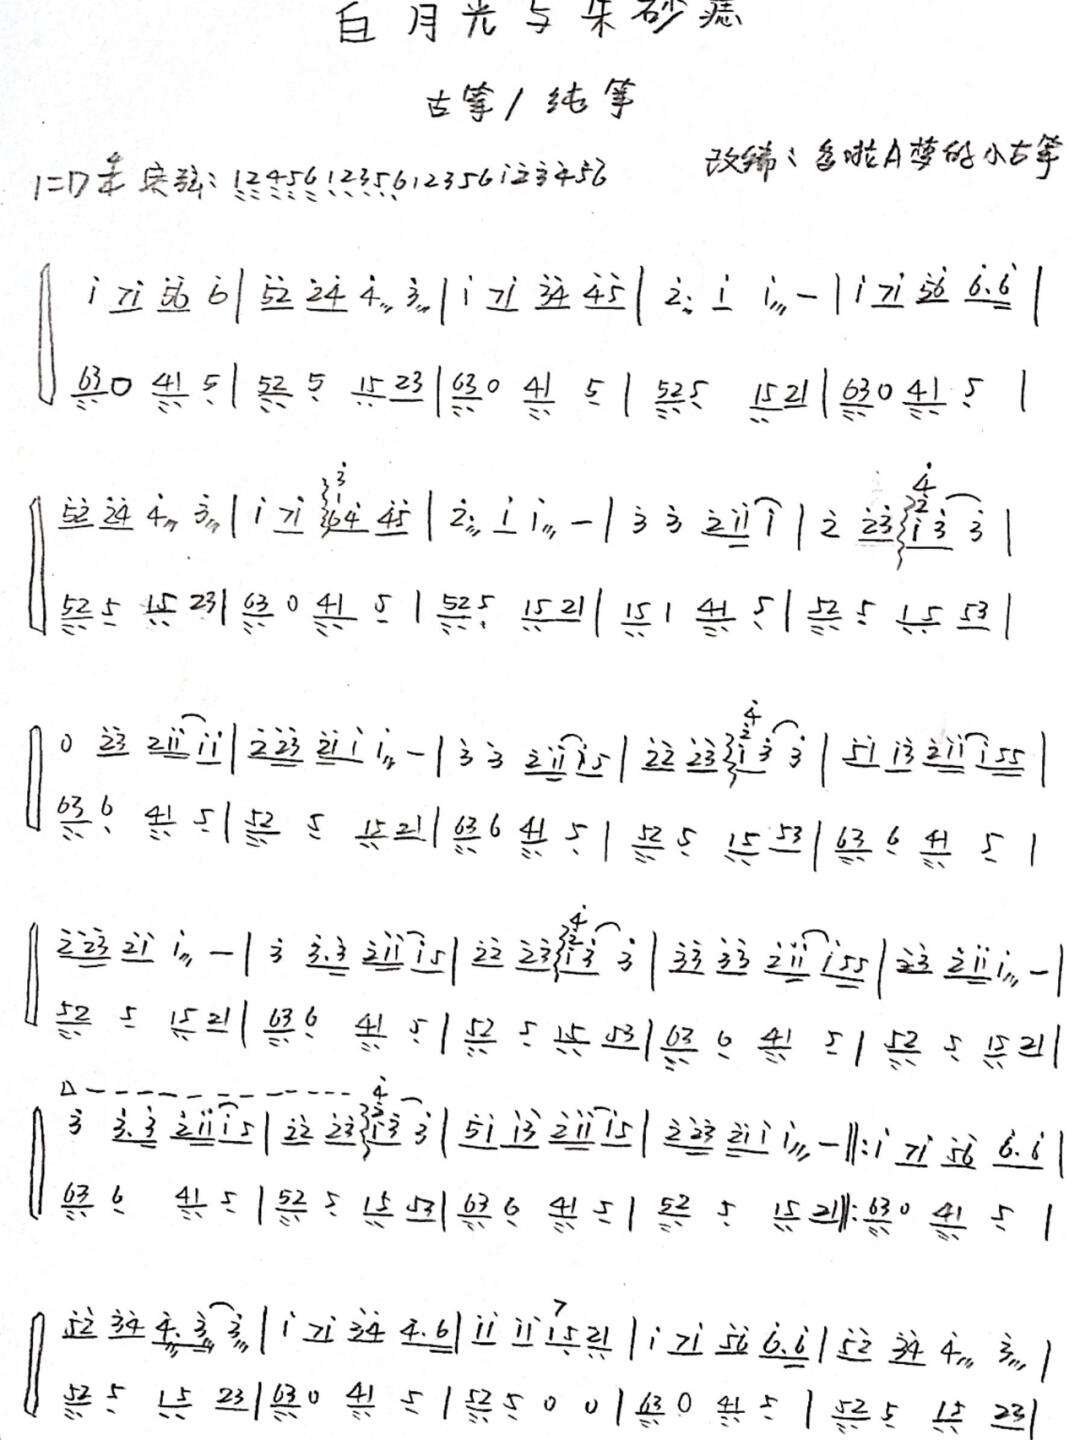 白月光与朱砂痣
古筝/纯筝
1=D 4/4 定弦: 124561235612356123456
改编: 多啦A梦的小古筝
1 71 56 6 | 52 24 4 3 | 1 71 34 45 | 2. 1 1 - | 1 71 56 6.6 |
63 0 41 5 | 52 5 15 23 | 63 0 41 5 | 52 5 15 21 | 63 0 41 5 |
52 24 4 3 | 1 71 3164 45 | 2. 1 1 - | 3 3 211 1 | 2 23 4213 3 |
52 5 15 23 | 63 0 41 5 | 52 5 15 21 | 15 1 41 5 | 52 5 15 53 |
0 23 211 11 | 223 211 1 - | 3 3 211 15 | 22 23 4213 3 | 51 13 211 155 |
63 6 41 5 | 52 5 15 21 | 63 6 41 5 | 52 5 15 53 | 63 6 41 5 |
223 21 1 - | 3 3.3 211 15 | 22 23 4213 3 | 33 33 211 155 | 23 211 1 - |
52 5 15 21 | 63 6 41 5 | 52 5 15 53 | 63 6 41 5 | 52 5 15 21 |
3 3.3 211 15 | 22 23 4213 3 | 51 13 211 15 | 223 211 1 - ‖: 1 71 56 6.6 |
63 6 41 5 | 52 5 15 53 | 63 6 41 5 | 52 5 15 21 ‖: 63 0 41 5 |
52 34 4.3 3 | 1 71 34 4.6 | 11 11 15 21 | 1 71 56 6.6 | 52 34 4 3 |
52 5 15 23 | 63 0 41 5 | 52 5 0 0 | 63 0 41 5 | 52 5 15 23 |